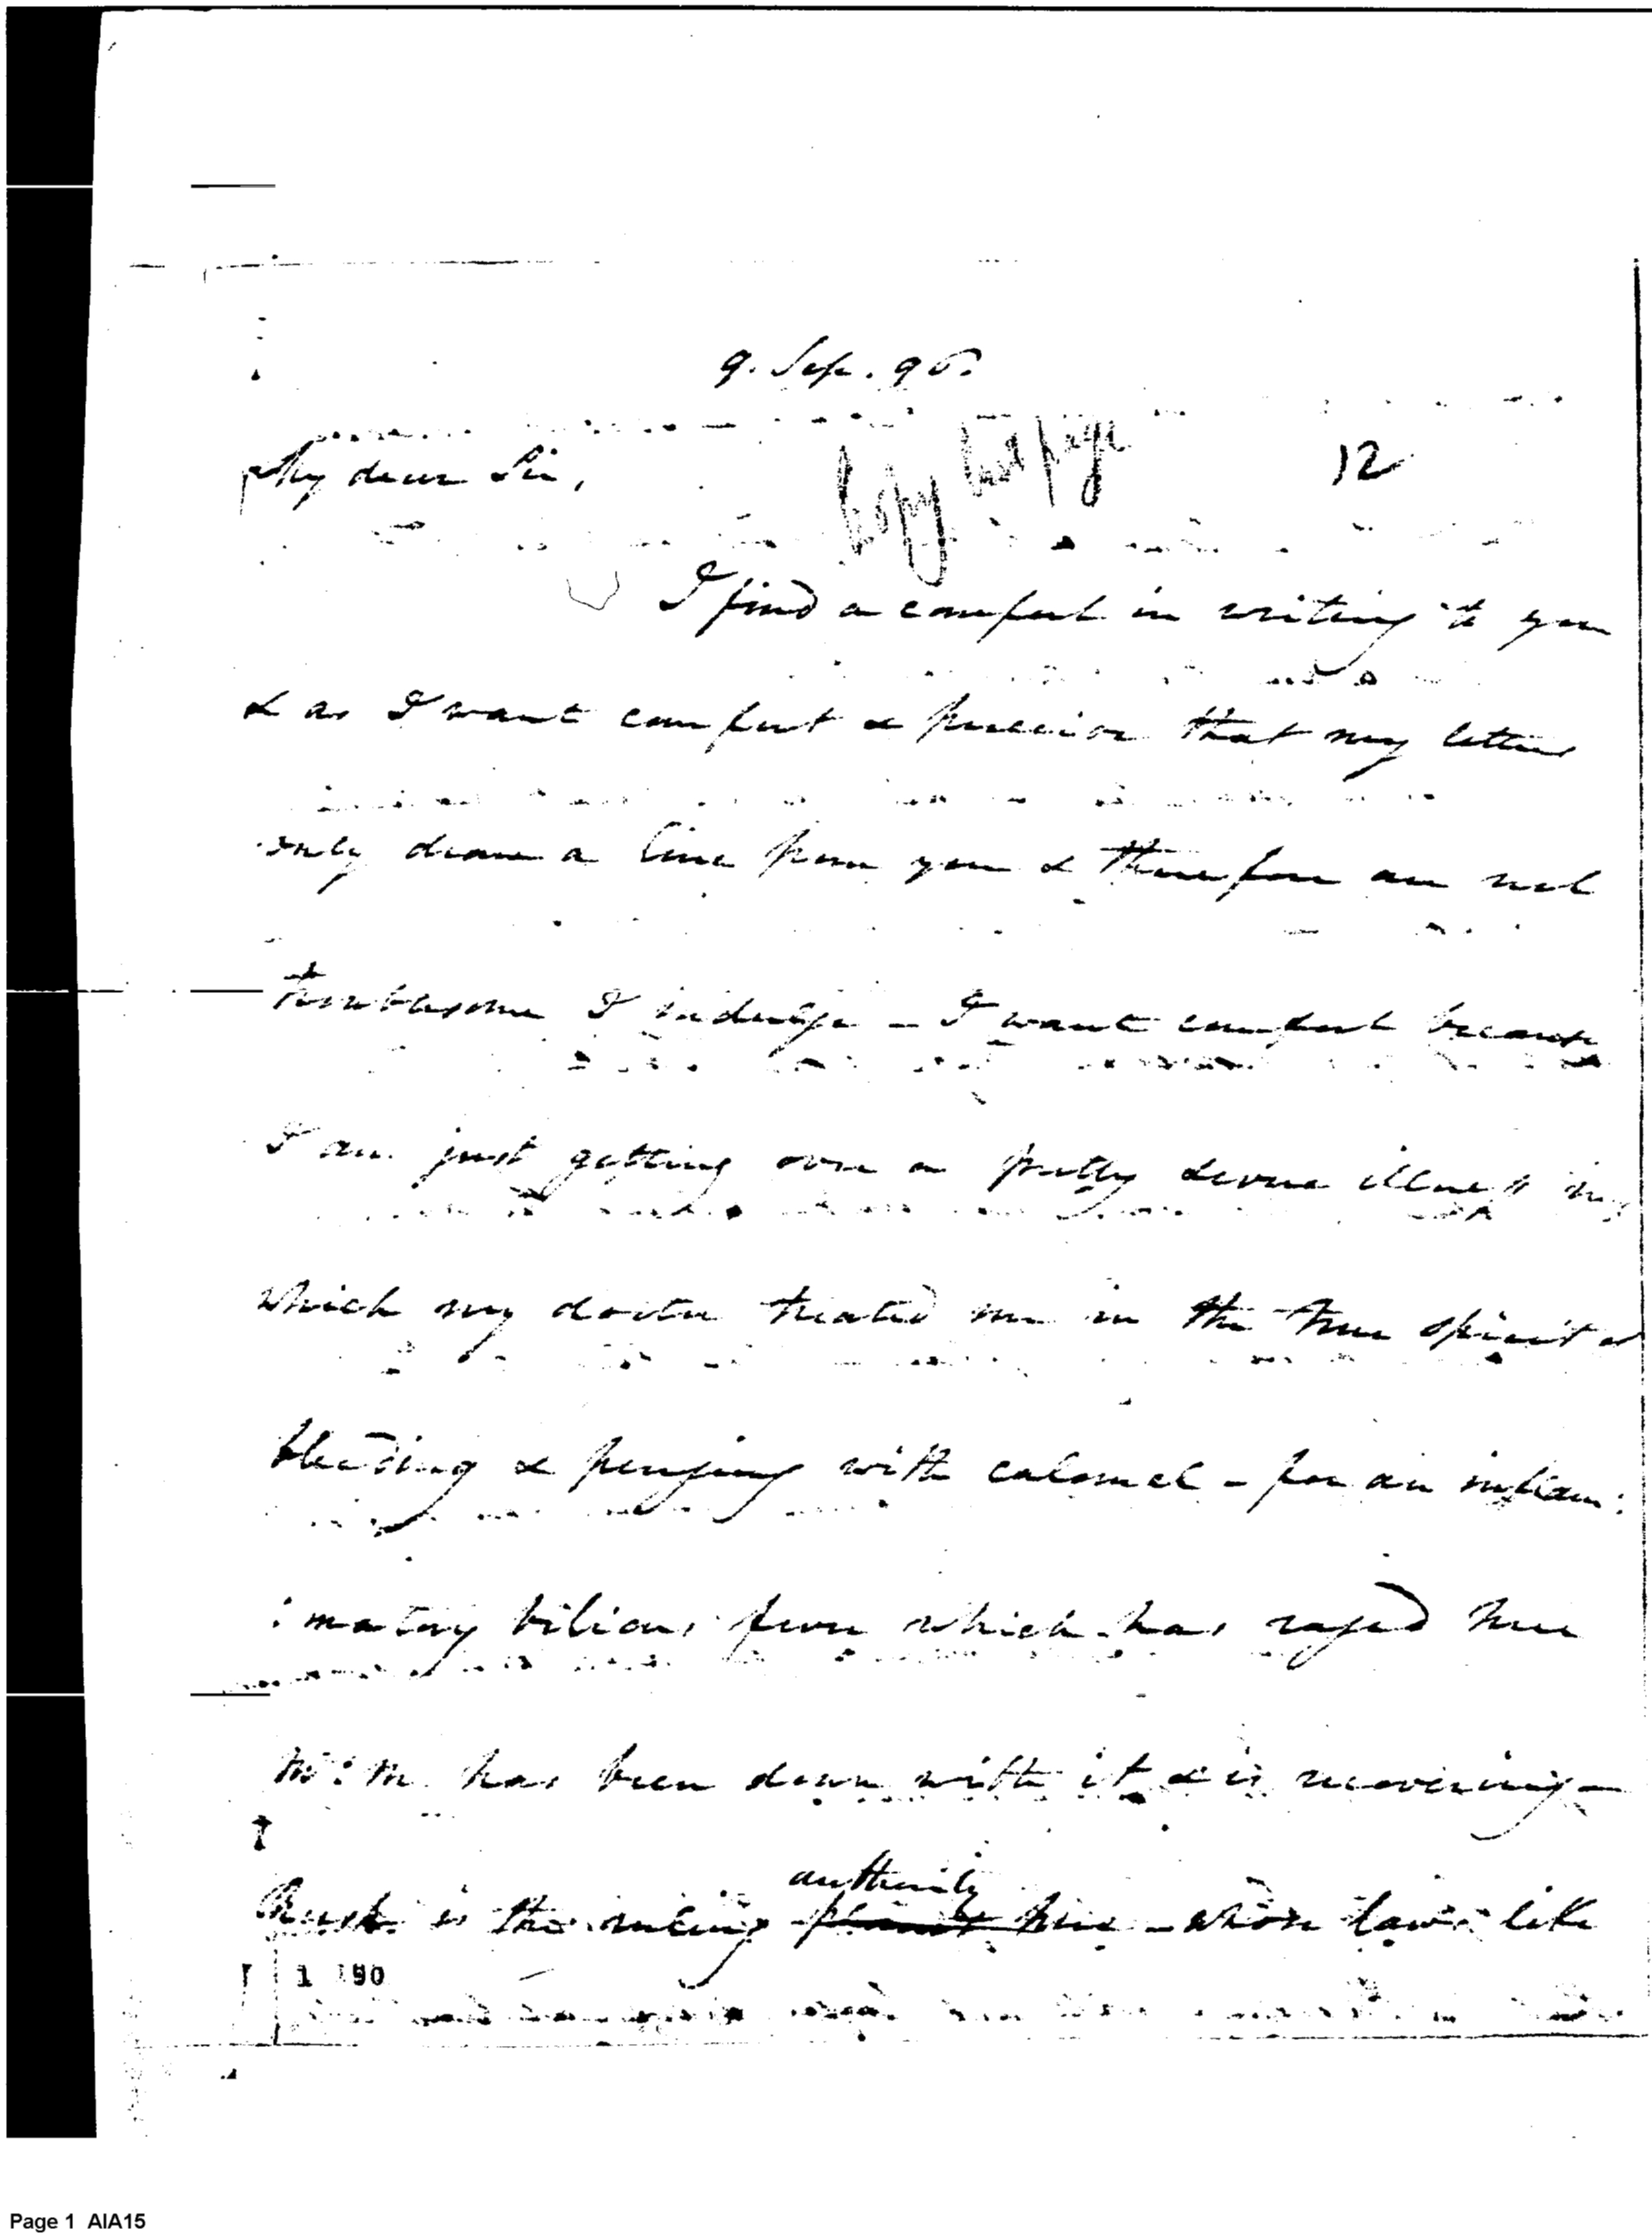 9. Sep. 95.
My dear Sir,
Copy last page
12
I find a comfort in writing to you
& as I want comfort & perceive that my letters
only draw a line from you & therefore am not
troublesome I indulge - I want comfort because
I am just getting over a pretty severe illness in
which my doctor treated me in the true spirit of
bleeding & purging with calomel - for an inflam:
:matory bilious fever which has raged here
Mrs: M. has been down with it & is recovering -
authority
Rush is the ruling here - whose laws like
1 190
Page 1 AIA15